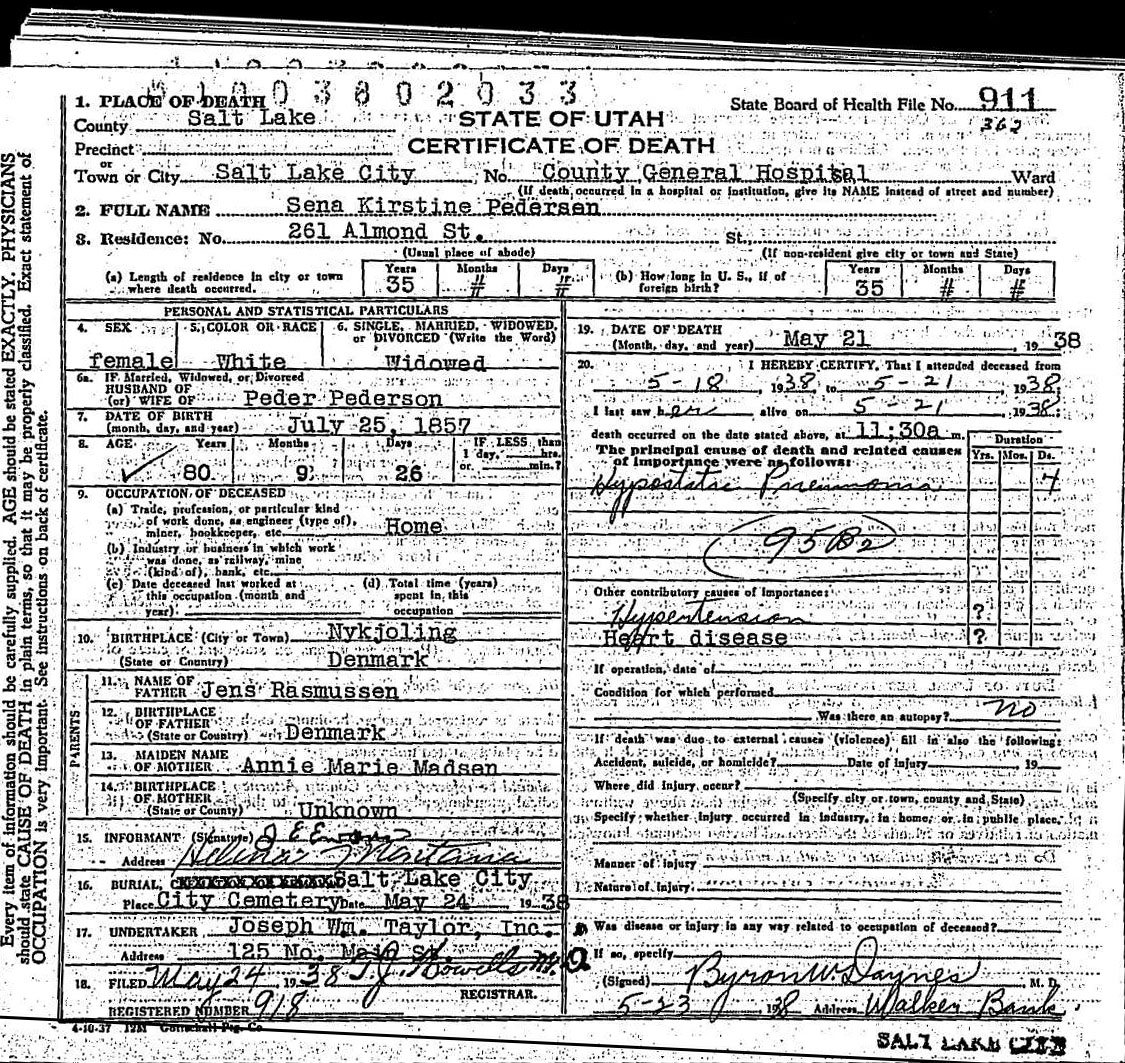 0 1 0 0 3 8 0 2 0 3 3
1. PLACE OF DEATH
State Board of Health File No. 911
362
County Salt Lake
STATE OF UTAH
Precinct
CERTIFICATE OF DEATH
or
Town or City Salt Lake City No. County General Hospital Ward
(If death occurred in a hospital or institution, give its NAME instead of street and number)
2. FULL NAME Sena Kirstine Pedersen
3. Residence: No. 261 Almond St. St.,
(Usual place of abode) (If non-resident give city or town and State)
(a) Length of residence in city or town where death occurred. Years 35 Months # Days #
(b) How long in U. S., if of foreign birth? Years 35 Months # Days #
PERSONAL AND STATISTICAL PARTICULARS
4. SEX female
5. COLOR OR RACE White
6. SINGLE, MARRIED, WIDOWED, or DIVORCED (Write the Word) Widowed
6a. IF Married, Widowed, or Divorced
HUSBAND OF
(or) WIFE OF Peder Pederson
7. DATE OF BIRTH
(month, day, and year) July 25, 1857
8. AGE Years Months Days IF LESS than
1 day, hrs.
or min.?
80 9 26
9. OCCUPATION OF DECEASED
(a) Trade, profession, or particular kind
of work done, as engineer (type of),
miner, bookkeeper, etc. Home
(b) Industry or business in which work
was done, as railway, mine
(kind of), bank, etc.
(c) Date deceased last worked at
this occupation (month and
year)
(d) Total time (years)
spent in this
occupation
10. BIRTHPLACE (City or Town) Nykjoling
(State or Country) Denmark
PARENTS
11. NAME OF
FATHER Jens Rasmussen
12. BIRTHPLACE
OF FATHER
(State or Country) Denmark
13. MAIDEN NAME
OF MOTHER Annie Marie Madsen
14. BIRTHPLACE
OF MOTHER
(State or County) Unknown
15. INFORMANT (Signature) J. E.
Address Montana
16. BURIAL, Salt Lake City
Place City Cemetery Date May 24 1938
17. UNDERTAKER Joseph Wm. Taylor, Inc.
Address 125 No. Main St.
18. FILED May 24 1938 T. J. Howells M.D.
REGISTRAR.
REGISTERED NUMBER 918
4-10-37 12M Gottschall Ptg. Co
19. DATE OF DEATH
(Month, day, and year) May 21 1938
20. I HEREBY CERTIFY, That I attended deceased from
5-18, 1938 to 5-21 1938
I last saw her alive on 5-21, 1938;
death occurred on the date stated above, at 11;30a m.
The principal cause of death and related causes
of importance were as follows:
Duration
Yrs. Mos. Ds.
Hypostatic Pneumonia 4
95B2
Other contributory causes of importance:
Hypertension ?
Heart disease ?
If operation, date of
Condition for which performed
Was there an autopsy? no
If death was due to external causes (violence) fill in also the following:
Accident, suicide, or homicide? Date of injury 19
Where did injury occur?
(Specify city or town, county and State)
Specify whether injury occurred in industry, in home, or in public place.
Manner of injury
Nature of injury
Was disease or injury in any way related to occupation of deceased?
If so, specify
(Signed) Byron W. Daynes M. D.
5-23 1938 Address Walker Bank
SALT LAKE CITY
Every item of information should be carefully supplied. AGE should be stated EXACTLY. PHYSICIANS
should state CAUSE OF DEATH in plain terms, so that it may be properly classified. Exact statement of
OCCUPATION is very important. See instructions on back of certificate.